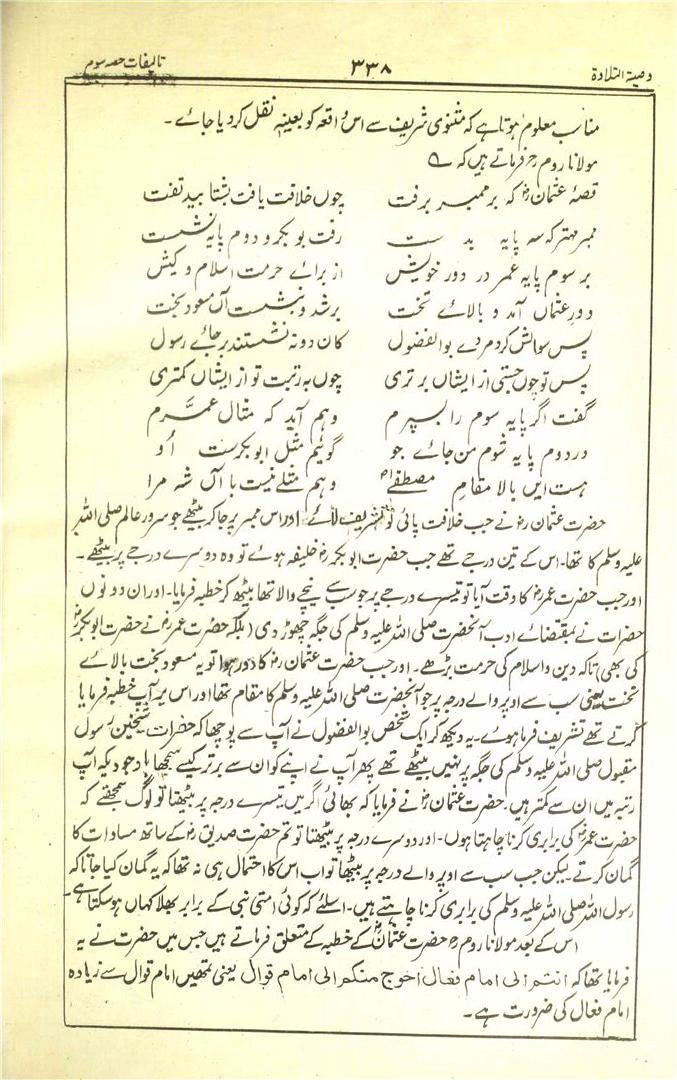 وصیۃ التلاوۃ ۳۳۸ تالیفات حصہ سوم
مناسب معلوم ہوتا ہے کہ مثنوی شریف سے اس واقعہ کو بعینہٖ نقل کر دیا جائے۔
مولانا روم رح فرماتے ہیں کہ ؎
قصۂ عثمان رض کہ بر ممبر برفت چوں خلافت یافت بشتابید تفت
ممبر مہتر کہ سہ پایہ بدست رفت بوبکر و دوم پایہ نشست
بر سوم پایہ عمر در دور خویش از برائے حرمت اسلام و کیش
دور عثماں آمد و بالائے تخت بر شد و بنشست آں مسعود بخت
پس سوالش کرد مردے بوالفضول کان دو نہ نشستند بر جائے رسول
پس تو چوں جستی از ایشاں برتری چوں بہ رتبت تو از ایشاں کمتری
گفت اگر پایہ سوم را بسپرم وہم آید کہ مثال عمّرم
در دوم پایہ شوم من جائے جو گوئیم مثل ابوبکرست اُو
ہست ایں بالا مقام مصطفےٰ وہم مثلے نیست با آں شہ مرا
حضرت عثمان رض نے جب خلافت پائی تو تشریف لائے اور اس ممبر پر جا کر بیٹھے جو سرور عالم صلی اللہ
علیہ وسلم کا تھا۔ اس کے تین درجے تھے جب حضرت ابوبکر رض خلیفہ ہوئے تو وہ دوسرے درجے پر بیٹھے۔
اور جب حضرت عمر رض کا وقت آیا تو تیسرے درجے پر جو سب سے نیچے والا تھا بیٹھ کر خطبہ فرمایا۔ اور ان دونوں
حضرات نے بمقتضائے ادب آنحضرت صلی اللہ علیہ وسلم کی جگہ چھوڑ دی (بلکہ حضرت عمر رض نے حضرت ابوبکر رض
کی بھی) تاکہ دین و اسلام کی حرمت بڑھے۔ اور جب حضرت عثمان رض کا دور ہوا تو یہ مسعود بخت بالائے
تخت یعنی سب سے اوپر والے درجہ پر جو آنحضرت صلی اللہ علیہ وسلم کا مقام تھا اور اس پر آپ خطبہ فرمایا
کرتے تھے تشریف فرما ہوئے۔ یہ دیکھ کر ایک شخص بوالفضول نے آپ سے پوچھا کہ حضرات شیخین رسول
مقبول صلی اللہ علیہ وسلم کی جگہ پر نہیں بیٹھے تھے پھر آپ نے اپنے کو ان سے برتر کیسے سمجھا باوجودیکہ آپ
رتبہ میں ان سے کمتر ہیں۔ حضرت عثمان رض نے فرمایا کہ بھائی اگر میں تیسرے درجہ پر بیٹھتا تو لوگ سمجھتے کہ
حضرت عمر رض کی برابری کرنا چاہتا ہوں۔ اور دوسرے درجہ پر بیٹھتا تو تم حضرت صدیق رض کے ساتھ مساوات کا
گمان کرتے۔ لیکن جب سب سے اوپر والے درجہ پر بیٹھا تو اب اس کا احتمال ہی نہ تھا کہ یہ گمان کیا جاتا کہ
رسول اللہ صلی اللہ علیہ وسلم کی برابری کرنا چاہتے ہیں۔ اسلئے کہ کوئی امتی نبی کے برابر بھلا کہاں ہو سکتا ہے۔
اس کے بعد مولانا روم رح حضرت عثمان رض کے خطبہ کے متعلق فرماتے ہیں جس میں حضرت نے یہ
فرمایا تھا کہ انتم الی امام فعال احوج منکم الی امام قوال یعنی تمھیں امام قوال سے زیادہ
امام فعال کی ضرورت ہے۔